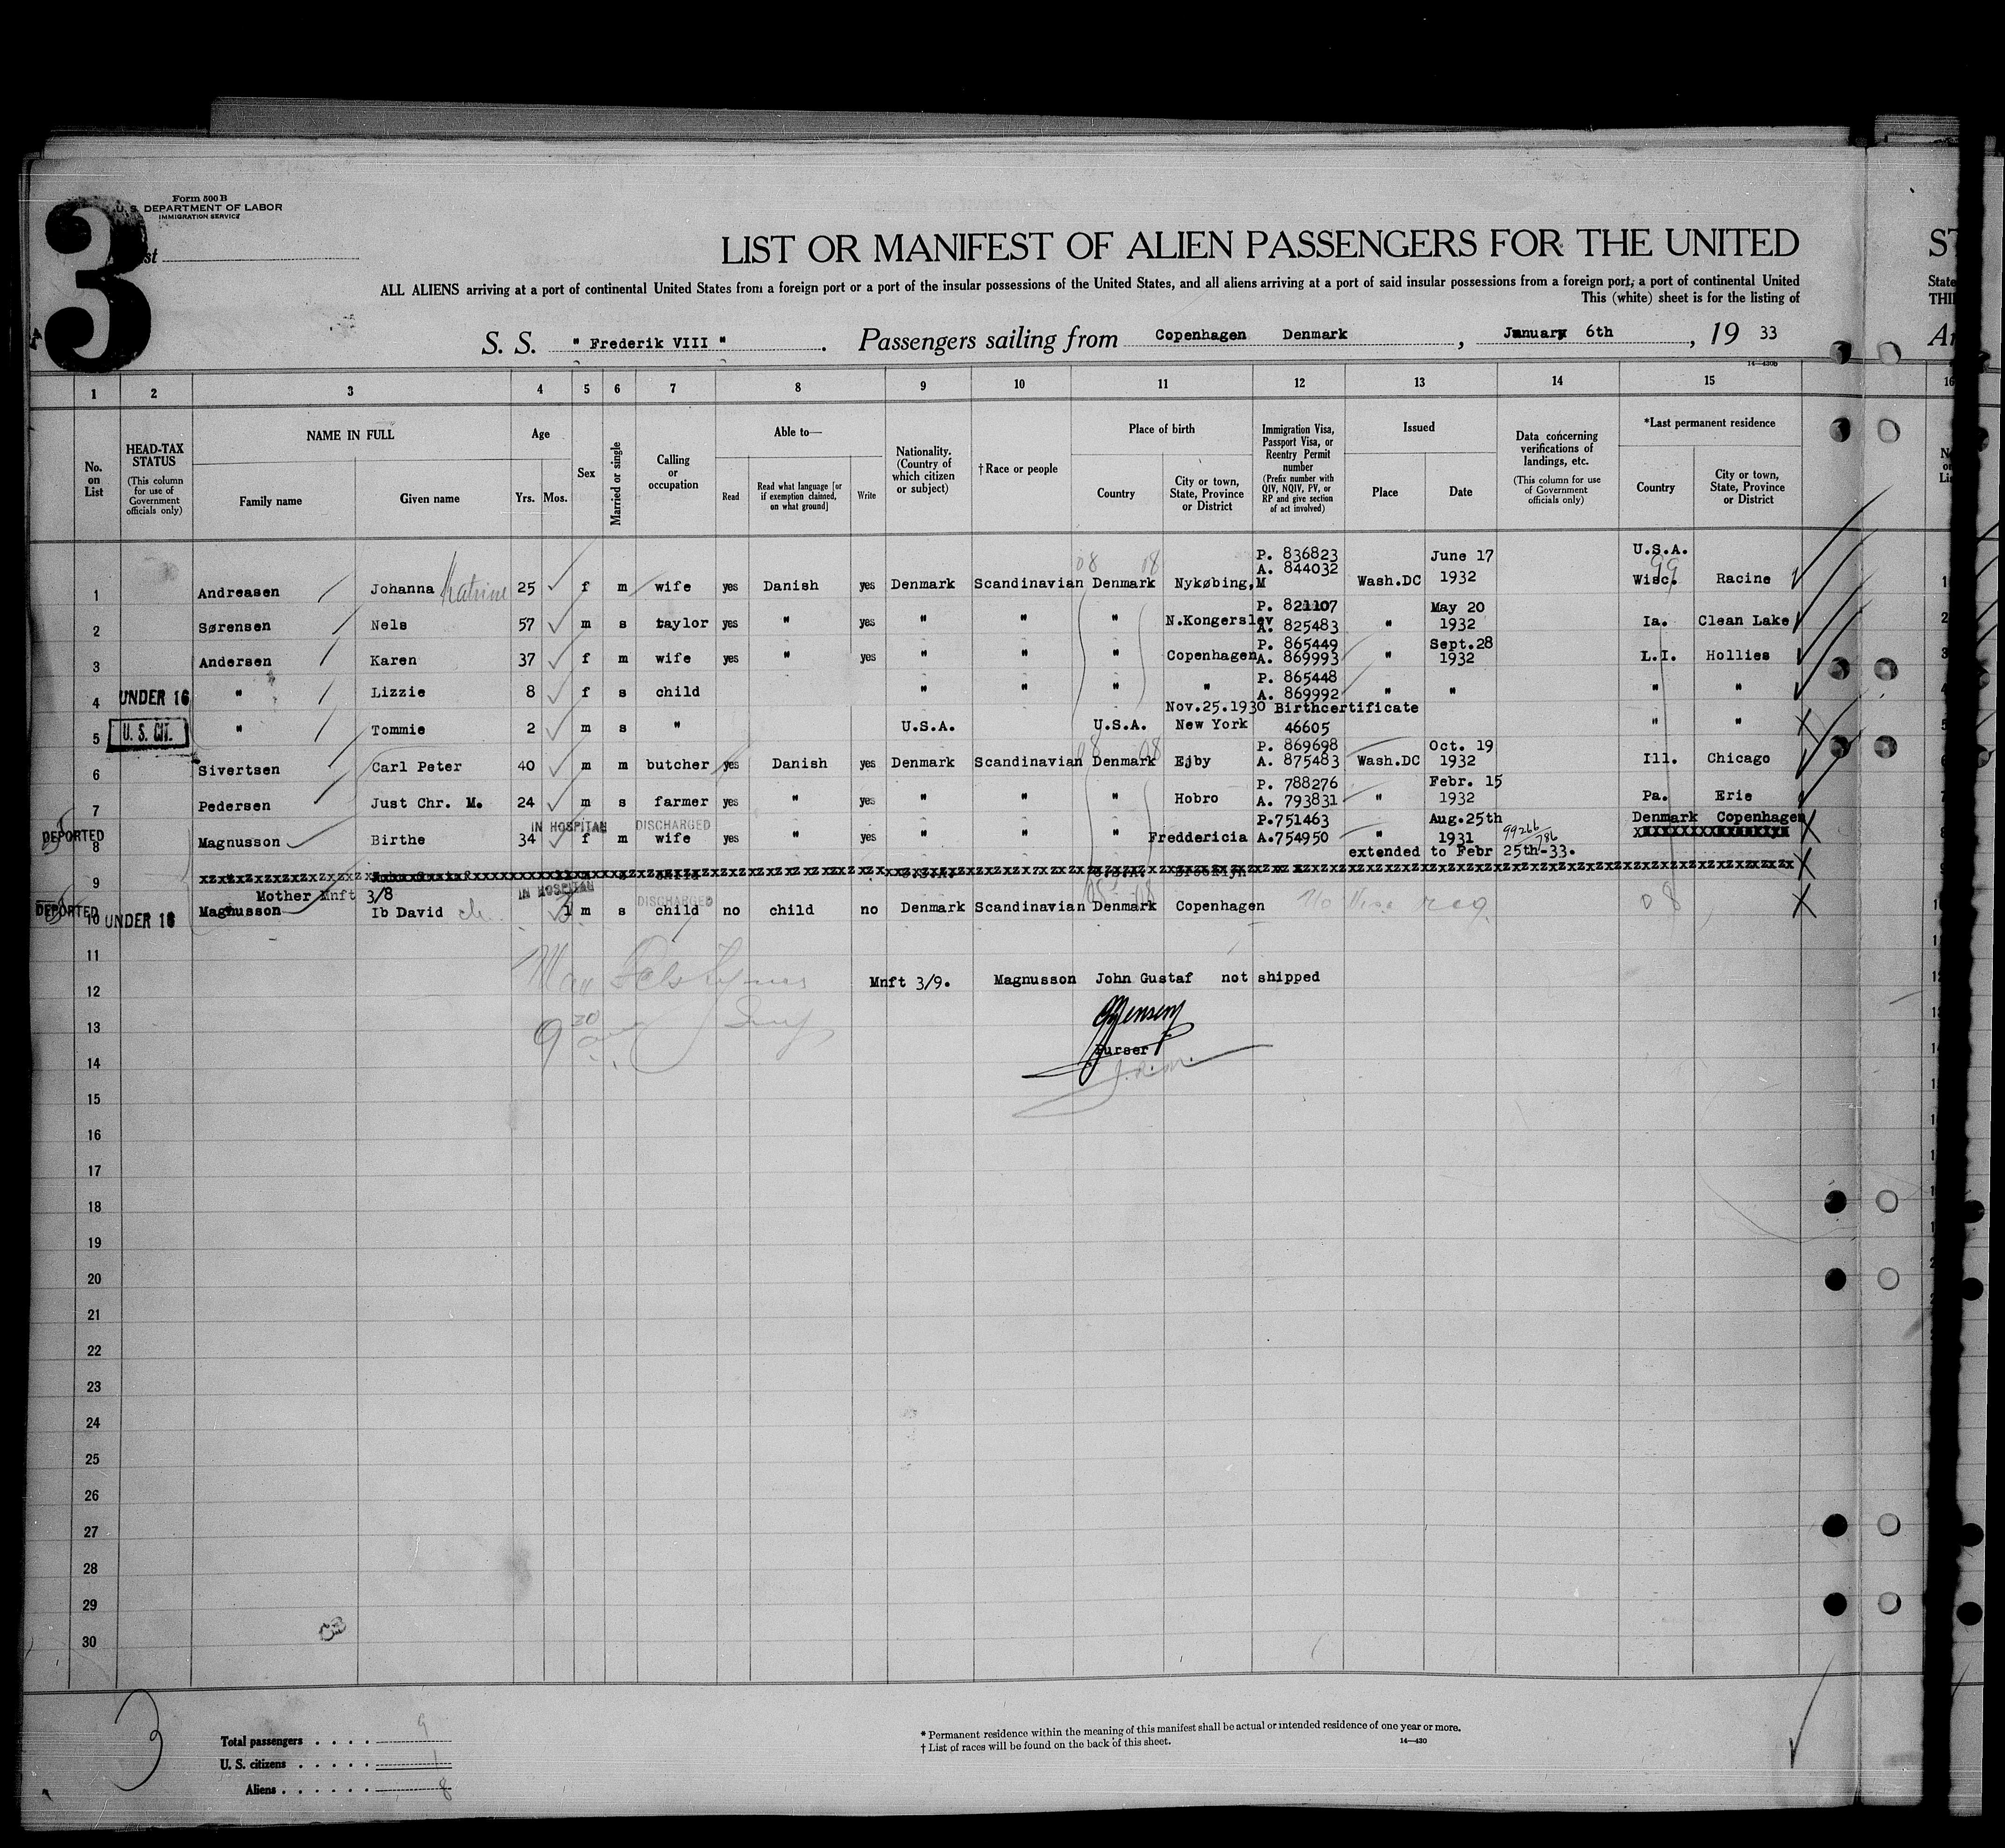 3
Form 500 B
U. S. DEPARTMENT OF LABOR
IMMIGRATION SERVICE
LIST OR MANIFEST OF ALIEN PASSENGERS FOR THE UNITED
ALL ALIENS arriving at a port of continental United States from a foreign port or a port of the insular possessions of the United States, and all aliens arriving at a port of said insular possessions from a foreign port, a port of continental United
This (white) sheet is for the listing of
S. S. " Frederik VIII " . Passengers sailing from Copenhagen Denmark , January 6th , 19 33
14—430B
1 2 3 4 5 6 7 8 9 10 11 12 13 14 15
No. on List
HEAD-TAX STATUS (This column for use of Government officials only)
NAME IN FULL
Family name Given name
Age
Yrs. Mos.
Sex
Married or single
Calling or occupation
Able to—
Read Read what language [or if exemption claimed, on what ground] Write
Nationality. (Country of which citizen or subject)
†Race or people
Place of birth
Country City or town, State, Province or District
Immigration Visa, Passport Visa, or Reentry Permit number (Prefix number with QIV, NQIV, PV, or RP and give section of act involved)
Issued
Place Date
Data concerning verifications of landings, etc. (This column for use of Government officials only)
*Last permanent residence
Country City or town, State, Province or District
P. 836823 June 17 U.S.A.
A. 844032
1 Andreasen Johanna Katrine 25 f m wife yes Danish yes Denmark Scandinavian Denmark Nykøbing,M Wash.DC 1932 Wisc. Racine
P. 821107 May 20
2 Sørensen Nels 57 m s taylor yes " yes " " " N.Kongerslev A. 825483 " 1932 Ia. Clean Lake
P. 865449 Sept.28
3 Andersen Karen 37 f m wife yes " yes " " " Copenhagen A. 869993 " 1932 L.I. Hollies
P. 865448
4 UNDER 16 " Lizzie 8 f s child " " " " A. 869992 " " " "
Nov.25.1930 Birthcertificate
5 U. S. CIT. " Tommie 2 m s " U.S.A. U.S.A. New York 46605 " "
P. 869698 Oct. 19
6 Sivertsen Carl Peter 40 m m butcher yes Danish yes Denmark Scandinavian Denmark Ejby A. 875483 Wash.DC 1932 Ill. Chicago
P. 788276 Febr. 15
7 Pedersen Just Chr. M. 24 m s farmer yes " yes " " " Hobro A. 793831 " 1932 Pa. Erie
IN HOSPITAL DISCHARGED P.751463 Aug.25th Denmark Copenhagen
DEPORTED 8 Magnusson Birthe 34 f m wife yes " yes " " " Freddericia A.754950 " 1931 99266/786
extended to Febr 25th-33.
9
Mother Mnft 3/8 IN HOSPITAL DISCHARGED
DEPORTED 10 UNDER 16 Magnusson Ib David ch. m s child no child no Denmark Scandinavian Denmark Copenhagen No Visa req. 08
11
12 Mnft 3/9. Magnusson John Gustaf not shipped
13 9 30
Purser
14
15
16
17
18
19
20
21
22
23
24
25
26
27
28
29
30
3
Total passengers . . . . 9
U. S. citizens . . . . . 1
Aliens . . . . . . 8
* Permanent residence within the meaning of this manifest shall be actual or intended residence of one year or more.
† List of races will be found on the back of this sheet.
14—430